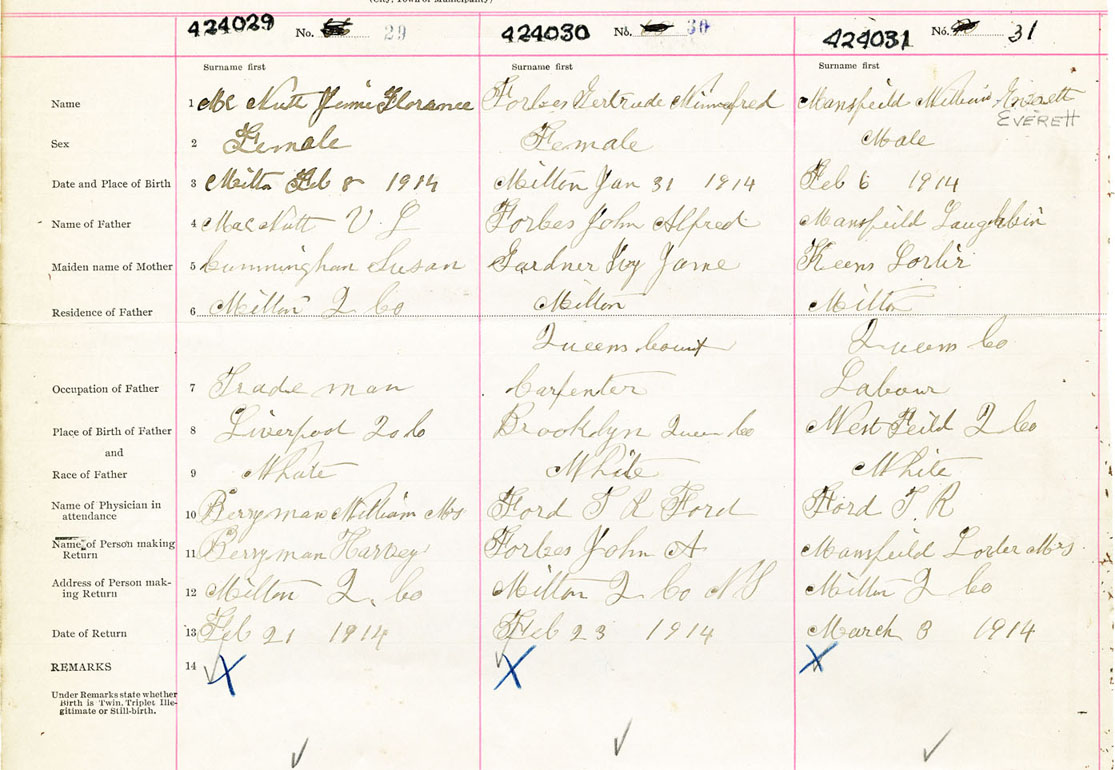 (City, Town or Municipality)
424029 No. 29 424030 No. 30 424031 No. 31
Surname first Surname first Surname first
Name 1 Mc Nutt Jennie Florance Forbes Gertrude Minnafred Mansfeild William Everett
EVERETT
Sex 2 Female Female Male
Date and Place of Birth 3 Milton Feb 8 1914 Milton Jan 31 1914 Feb 6 1914
Name of Father 4 MacNutt V L Forbes John Alfred Mansfeild Laughlin
Maiden name of Mother 5 Cunningham Susan Gardner Ivy Jane Keens
Residence of Father 6 Milton Q Co Milton Milton
Queens County Queens Co
Occupation of Father 7 Trade man Carpenter Labour
Place of Birth of Father 8 Liverpool Q Co Brooklyn Queen Co West Feild Q Co
and
Race of Father 9 White White White
Name of Physician in
attendance 10 Berryman William Mrs Ford T R Ford Ford T R
Name of Person making
Return 11 Berryman Harvey Forbes John A Mansfeild Mrs
Address of Person mak-
ing Return 12 Milton Q. Co Milton Q Co N S Milton Q Co
Date of Return 13 Feb 21 1914 Feb 23 1914 March 3 1914
REMARKS 14 X X X
Under Remarks state whether
Birth is Twin, Triplet Ille-
gitimate or Still-birth.